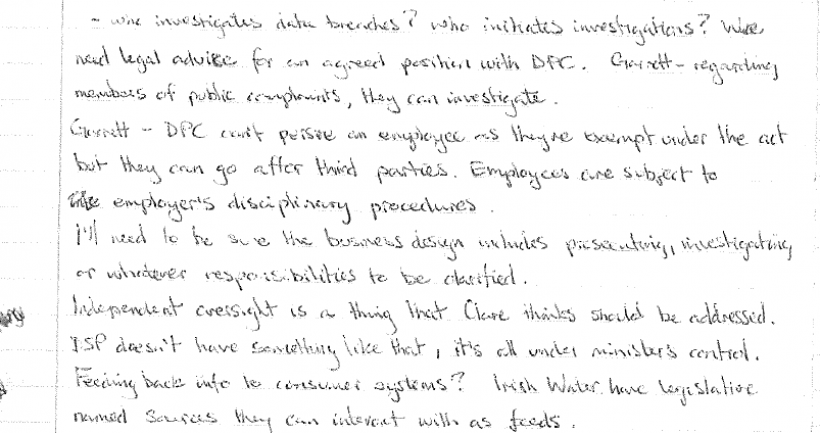 - who investigates data breaches? Who initiates investigations? We
need legal advise for an agreed position with DPC. Garrett - regarding
members of public complaints, they can investigate.
Garrett - DPC can't persue an employee as they're exempt under the act
but they can go after third parties. Employees are subject to
employer's disciplinary procedures.
I'll need to be sure the business design includes prosecuting, investigating
or whatever responsibilities to be clarified.
Independent oversight is a thing that Clare thinks should be addressed.
DSP doesn't have something like that, it's all under minister's control.
Feeding back info to consumer systems? Irish Water have legislative
named sources they can interact with as feeds.